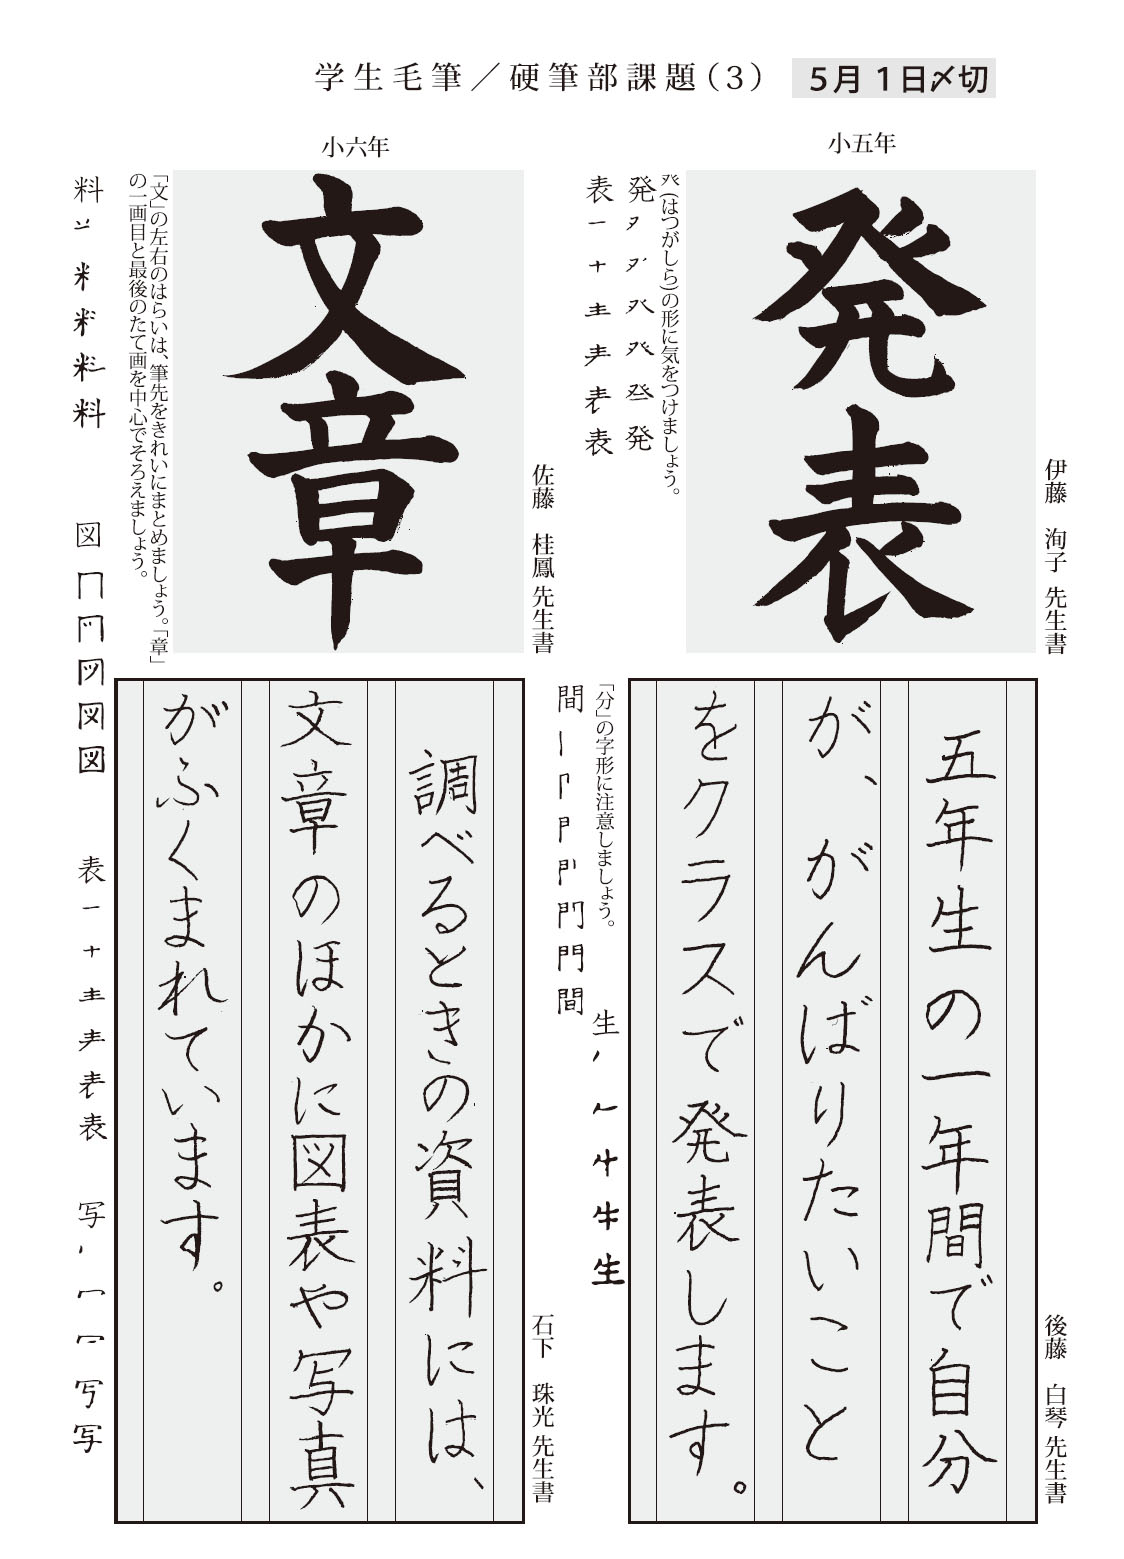 学生毛筆／硬筆部課題（3）
5月1日〆切
小五年
発表
伊藤　洵子 先生書
癶(はつがしら)の形に気をつけましょう。
発
発
表一十主表表
五年生の一年間で自分
が、がんばりたいこと
をクラスで発表します。
後藤　白琴 先生書
「分」の字形に注意しましょう。
間｜門門間
生ノ牛生
小六年
文章
佐藤　桂鳳 先生書
「文」の左右のはらいは、筆先をきれいにまとめましょう。「章」
の一画目と最後のたて画を中心でそろえましょう。
料米料
図冂図図
表一十主表表
写写
調べるときの資料には、
文章のほかに図表や写真
がふくまれています。
石下　珠光 先生書